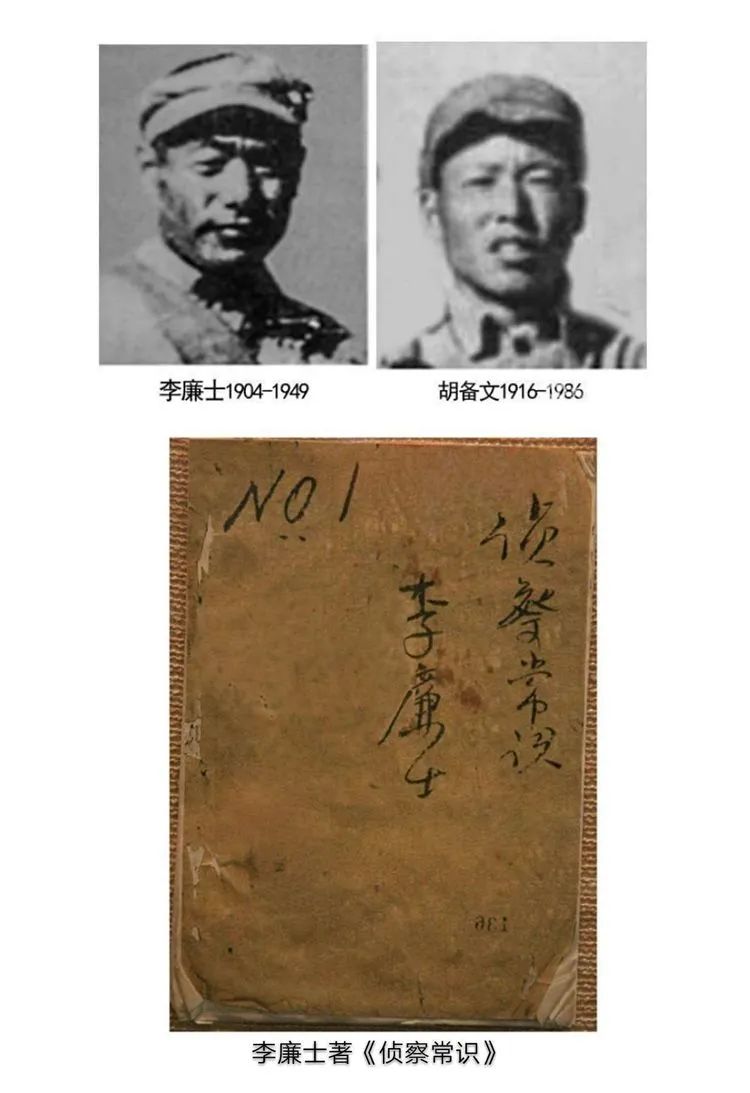 李廉士1904-1949
胡备文1916-1986
NO 1
侦察常识
李廉士
136
李廉士著《侦察常识》